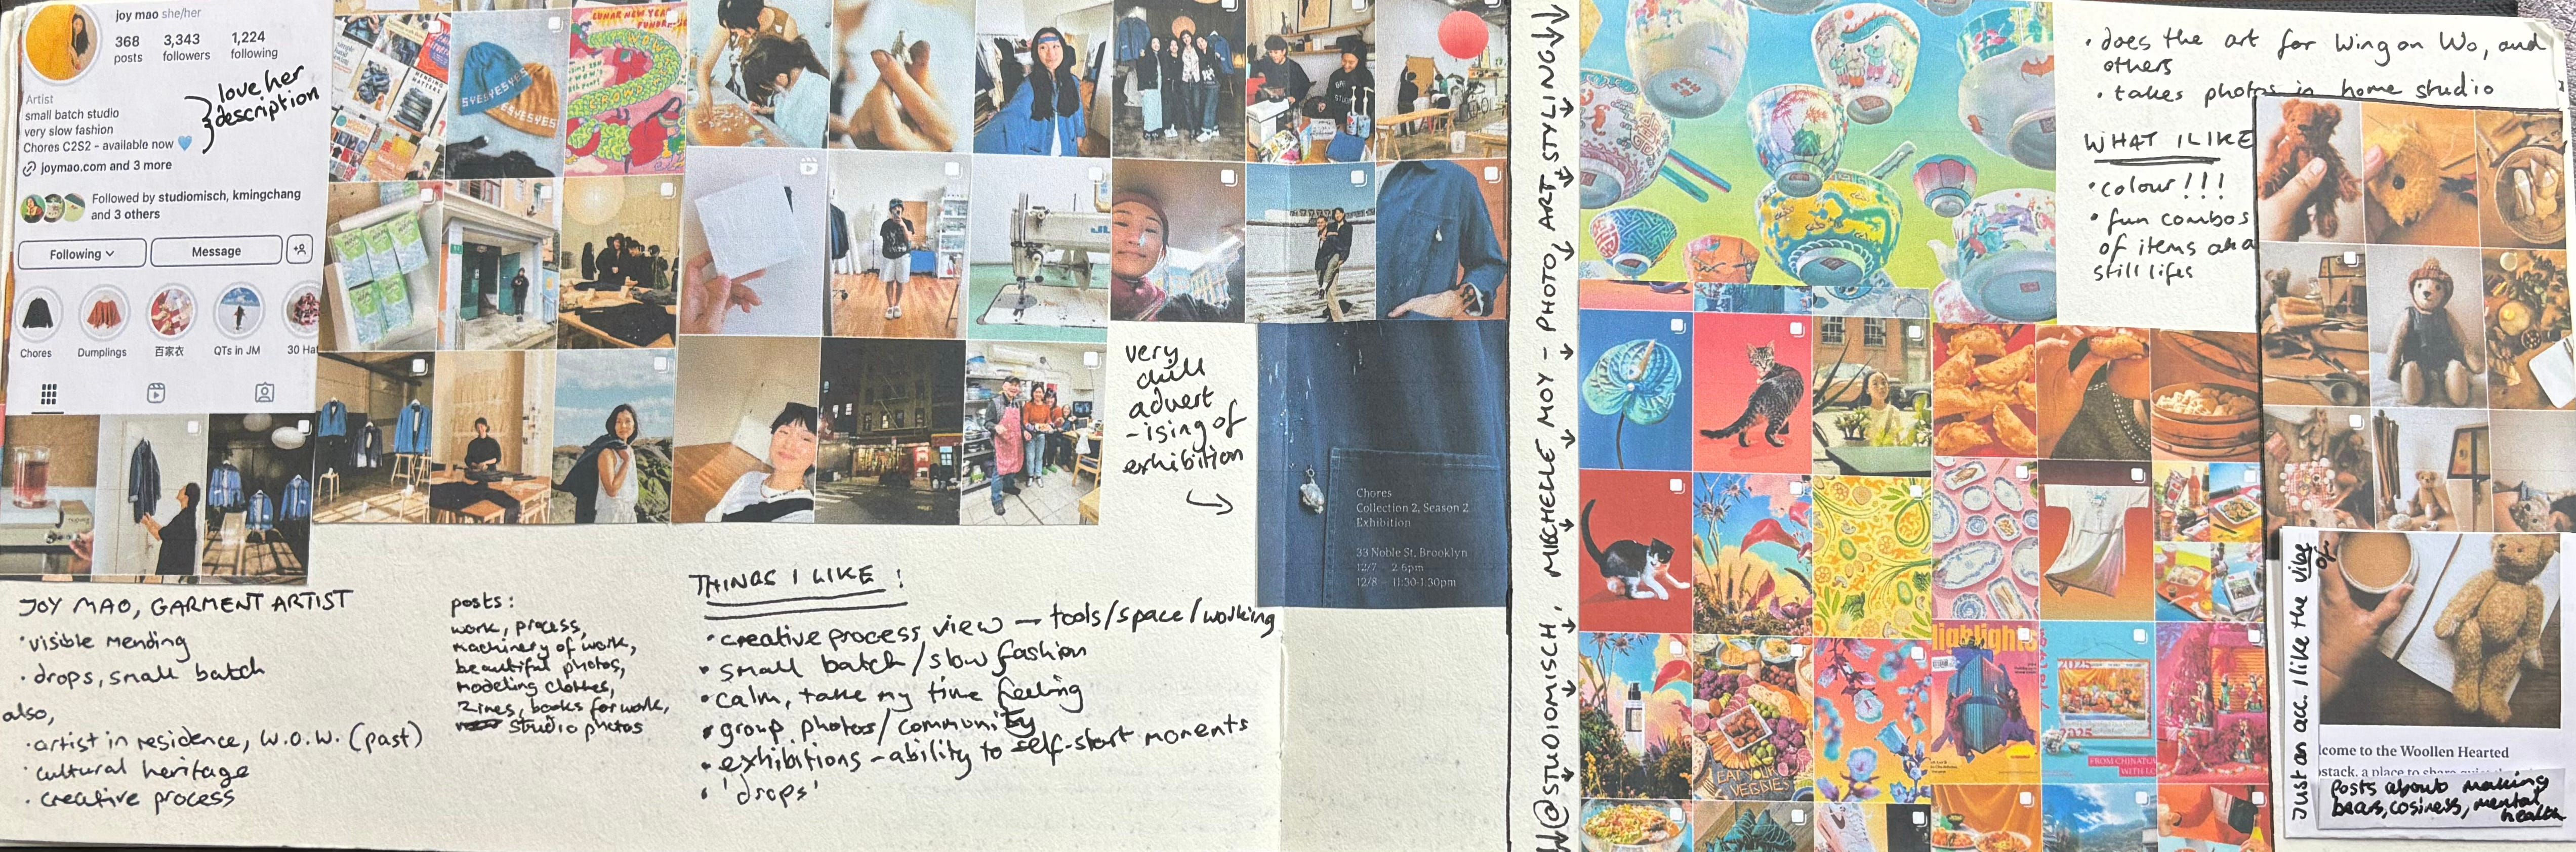 joy mao she/her
368 3,343 1,224
posts followers following
Artist
small batch studio
very slow fashion
Chores C2S2 - available now 💙
joymao.com and 3 more
Followed by studiomisch, kmingchang
and 3 others
Following
Message
Chores
Dumplings
百家衣
QTs in JM
30 Hat
love her
description
LUNAR NEW YEAR
SYESYESYES
ESYESYES
very
chill
advert
-ising of
exhibition
Chores
Collection 2, Season 2
Exhibition
33 Noble St, Brooklyn
12/7 – 2-6pm
12/8 – 11:30-1:30pm
JOY MAO, GARMENT ARTIST
• visible mending
• drops, small batch
also,
• artist in residence, W.O.W. (past)
• cultural heritage
• creative process
posts:
work, process,
machinery of work,
beautiful photos,
modeling clothes,
zines, books for work,
studio photos
THINGS I LIKE!
• creative process view – tools/space/working
• small batch/slow fashion
• calm, take my time feeling
• group photos/community
• exhibitions – ability to self-start moments
• 'drops'
@STUDIOMISCH, MICHELLE MOY – PHOTO, ART STYLING
• does the art for Wing on Wo, and
others
• takes photos in home studio
WHAT I LIKE
• colour!!!
• fun combos
of items aka
still lifes
highlights
EAT YOUR
VEGGIES
2025
2025
FROM CHINATOWN
WITH LO
Just an acc. I like the vibe
of
lcome to the Woollen Hearted
ostack, a place to share
posts about making
bears, cosiness, mental
health